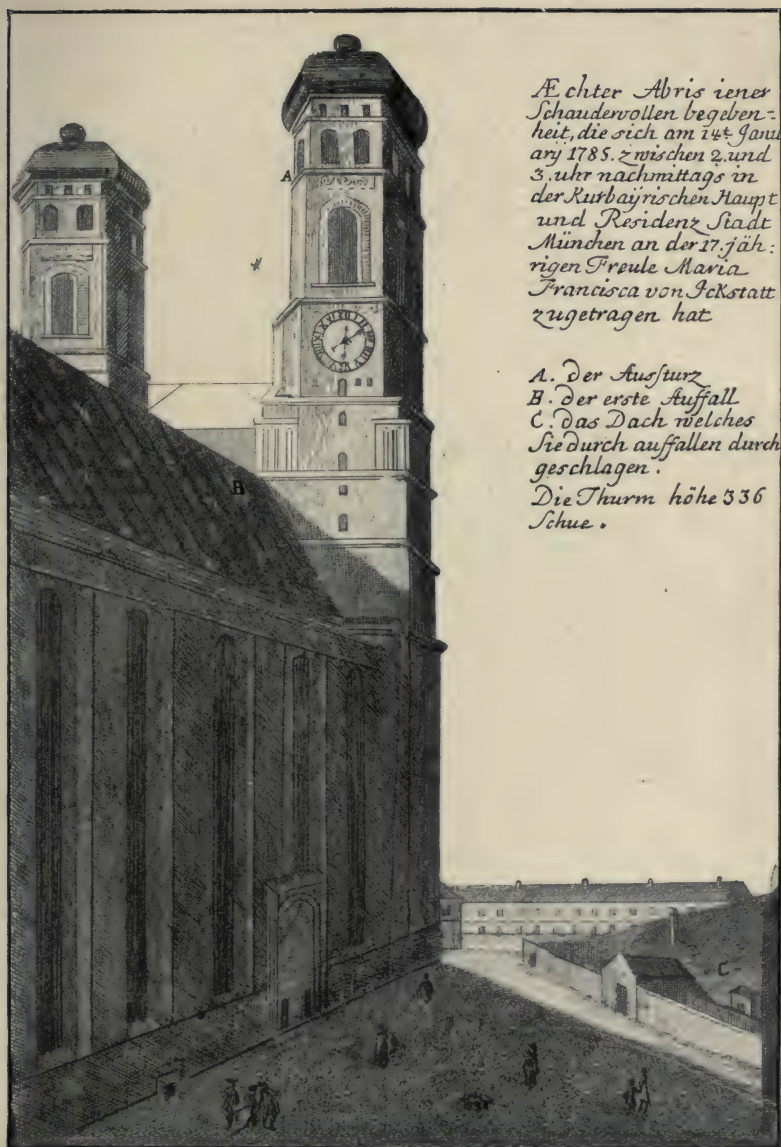 Æchter Abris iener
Schaudervollen begeben=
heit, die sich am 14t Janu
ary 1785. zwischen 2. und
3. uhr nachmittags in
der Kurbayrischen Haupt
und Residenz Stadt
München an der 17. jäh:
rigen Freule Maria
Francisca von Ickstatt
zugetragen hat
A. der Aussturz
B. der erste Auffall
C. das Dach welches
Sie durch auffallen durch
geschlagen.
Die Thurm höhe 336
Schue.
A
B
C